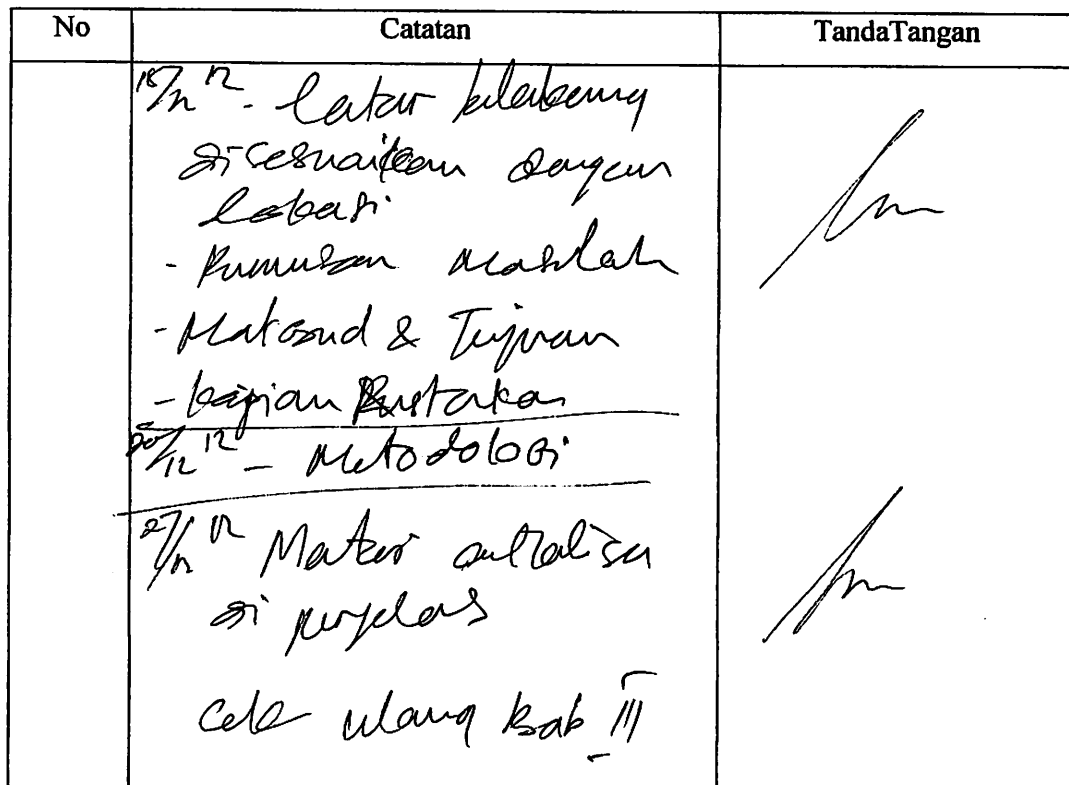 No Catatan TandaTangan
18/12 12 - Latar belakang
disesuaikan dengan
lokasi
- Rumusan Masalah
- Maksud & Tujuan
- Kajian Pustaka
20/12 12 - Metodologi
27/12 12 Materi analisa
di perjelas
Cek ulang Bab III